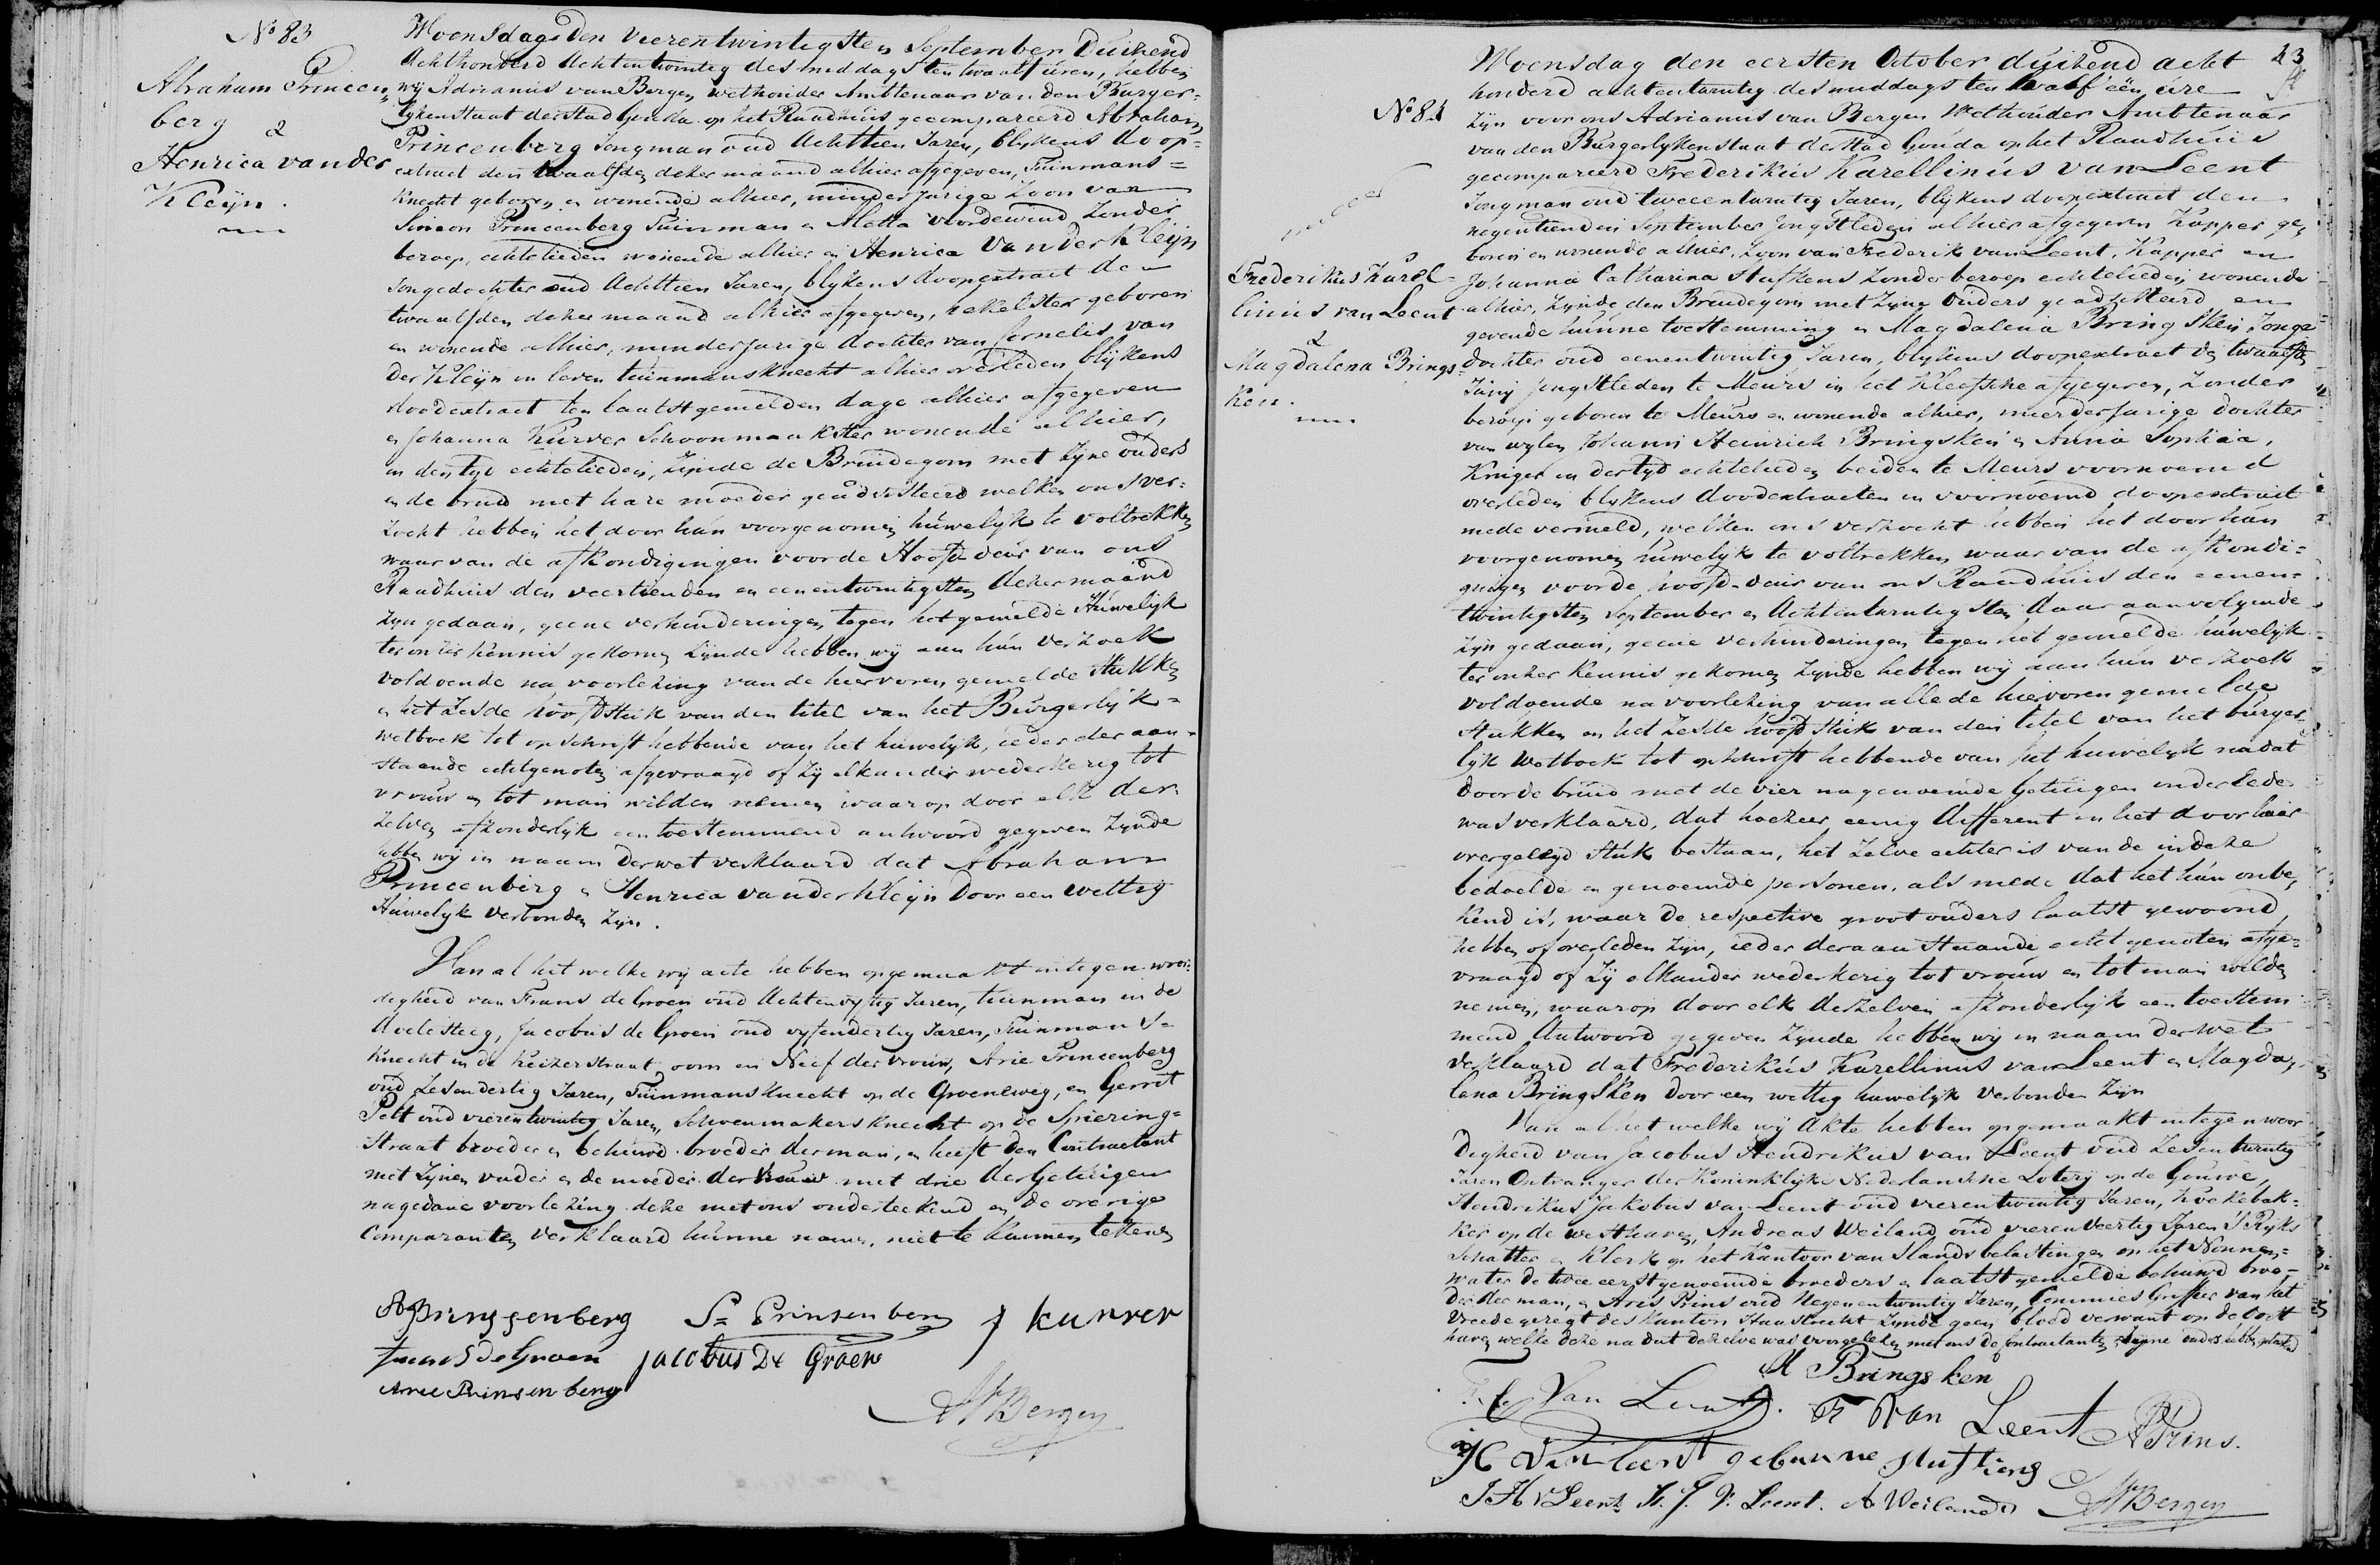 No 83
Abraham Princen„
berg &
Henrica van der
Kleijn.
Woensdag den vierentwintigsten September Duizend
Achthonderd Achtentwintig des middags ten twaalf uren, hebben
wij Adrianus van Bergen wethouder Ambtenaar van den Burger=
lyken Staat der stad Gouda op het Raadhuis gecompareerd Abraham
Princenberg Jongman oud Achttien Jaren, blykens doop=
extract den twaalfden dezer maand alhier afgegeven, Tuinmans=
knecht geboren en wonende alhier, minderjarige Zoon van
Simeon Princenberg Tuinman en Metta Voordewind Zonder
beroep, echtelieden wonende alhier en Henrica van der Kleijn
Jongedochter oud Achttien Jaren, blykens doopextract den
twaalfden dezer maand alhier afgegeven, rekelster geboren
en wonende alhier, minderjarige dochter van Cornelis van
der Kleijn in leven tuinmansknecht alhier overleden blijkens
doodextract ten laatstgemelden dage alhier afgegeven
en Johanna Kurver Schoonmaakster wonende alhier,
in der tyd echtelieden, Zijnde de Bruidegom met Zijne ouders
en de bruid met hare moeder geadsisteerd welken ons ver=
zocht hebben het door hun voorgenomen huwelijk te voltrekken
waar van de afkondigingen voor de Hoofd-deur van ons
Raadhuis den veertienden en eenentwintigsten dezer maand
Zijn gedaan, geene verhinderingen tegen het gemelde Huwelijk
ter onzer kennis gekomen Zijnde hebben wij aan hun verzoek
voldoende na voorlezing van de hiervoren gemelde stukken
en het Zesde hoofdstuk van den titel van het Burgerlijk=
wetboek tot opschrift hebbende van het huwelijk, ieder der aan=
staande echtgenoten afgevraagd of Zij elkander wederkerig tot
vrouw en tot man wilden nemen waarop door elk der
zelven afzonderlijk een toestemmend antwoord gegeven Zijnde
hebben wij in naam der wet verklaard dat Abraham
Princenberg en Henrica van der Kleijn door een wettig
Huwelyk verbonden Zijn.
Van al het welke wij acte hebben opgemaakt in tegenwoor:
digheid van Frans de Groen oud Achtenvyftig Jaren, tuinman in de
Boelesteeg, Jacobus de Groen oud vyfendertig Jaren, Tuinmans=
knecht in de Keizerstraat, oom en Neef der vrouw, Arie Princenberg
oud Zesendertig Jaren, Tuinmansknecht op de Groeneweg, en Gerrit
Pelt oud vierentwintig Jaren, Schoenmakersknecht op de Spiering=
straat broeder en behuwd broeder der man, en heeft den Contractant
met Zijnen vader en de moeder der vrouw met drie der getuigen
nagedane voorlezing deze met ons onderteekend en de overige
Comparanten verklaard hunne namen niet te kunnen tekenen
A Prinssenberg S= Prinsenberg J kurver
Frans de Groen Jacobus De Groen
Arie Prinsenberg
AvBergen
43
No 84
Frederikus Karel=
linus van Leent
&
Magdalena Brings=
ken.
Woensdag den eersten October duizend acht
honderd achtentwintig des middags ten twaalf uren
Zijn voor ons Adrianus van Bergen Wethouder Ambtenaar
van den Burgerlyken staat der Stad Gouda op het Raadhuis
gecompareerd Frederikus Karellinus van Leent
Jongman oud tweeentwintig Jaren, blijkens doopextract den
negentienden September jongstleden alhier afgegeven Kapper ge„
boren en wonende alhier, Zoon van Frederik van Leent, Kapper en
Johanna Catharina Stuffkens Zonder beroep echtelieden wonende
alhier, Zijnde den Bruidegom met Zijne Ouders geadsisteerd en
gevende hunne toestemming en Magdalena Bringsken Jonge=
dochter oud eenentwintig Jaren, blykens doopextract den twaalfden
Junij jongstleden te Meurs in het Kleefsche afgegeven, Zonder
beroep geboren te Meurs en wonende alhier, meerderjarige dochter
van wylen Johann Heinrich Bringsken en Anna Sophia,
Kruger in der tyd echtelieden beiden te Meurs voornoemd
overleden blykens doodextracten in voornoemd doopextract
mede vermeld, welken ons verzocht hebben het door hun
voorgenomen huwelyk te voltrekken waar van de afkondi=
gingen voor de hoofd-deur van ons Raadhuis den eenen=
twintigsten September en Achtentwintigsten daaraanvolgende
Zijn gedaan, geene verhinderingen tegen het gemelde huwelijk
ter onzer kennis gekomen Zijnde hebben wij aan hun verzoek
voldoende na voorlezing van alle de hiervoren gemelde
stukken en het Zesde hoofdstuk van den titel van het burger=
lijk Wetboek tot opschrift hebbende van het huwelyk nadat
door de bruid met de vier nagenoemde getuigen onder eede
was verklaard, dat hoezeer eenig different in het door haar
overgelegd stuk bestaan, het Zelve echter is van de in deze
bedoelde en genoemde personen, als mede dat het hun onbe„
kend is, waar de respective grootouders laatst gewoond
hebben of overleden Zijn, ieder der aanstaande echtgenoten afge=
vraagd of Zij elkander wederkerig tot vrouw en tot man wilden
nemen, waarop door elk derzelven afzonderlijk een toestem
mend Antwoord gegeven Zijnde hebben wij in naam der wet
verklaard dat Frederikus Karellinus van Leent en Magda„
lena Bringsken door een wettig huwelyk verbonden Zijn
Van al het welke wij Akte hebben opgemaakt in tegenwoor
digheid van Jacobus Hendrikus van Leent oud Zesentwintig
Jaren Ontvanger der Koninklijke Nederlandsche Loterij op de Gouwe,
Hendrikus Jakobus van Leent oud vierentwintig Jaren, Koekebak=
ker op de westhaven, Andreas Weiland oud vierenveertig Jaren S Ryks
Schatter en Klerk op het Kantoor van Slands belastingen op het Nonnen=
water de twee eerstgenoemde broeders en laatstgemelde behuwd broe=
der der man, en Aris Prins oud Negenentwintig Jaren, Commies Griffier van het
Vredegeregt des Kanton Haastrecht Zijnde geen bloed verwant op de Oost
haven welke deze na dat dezelve was voorgelezen met ons de Contractanten
M Bringsken
Van Leent. Fr Van Leent APrins.
JC Van Leent gebooren Stuffkens
JH v Leent H. J. V. Leent. A Weiland AvBergen